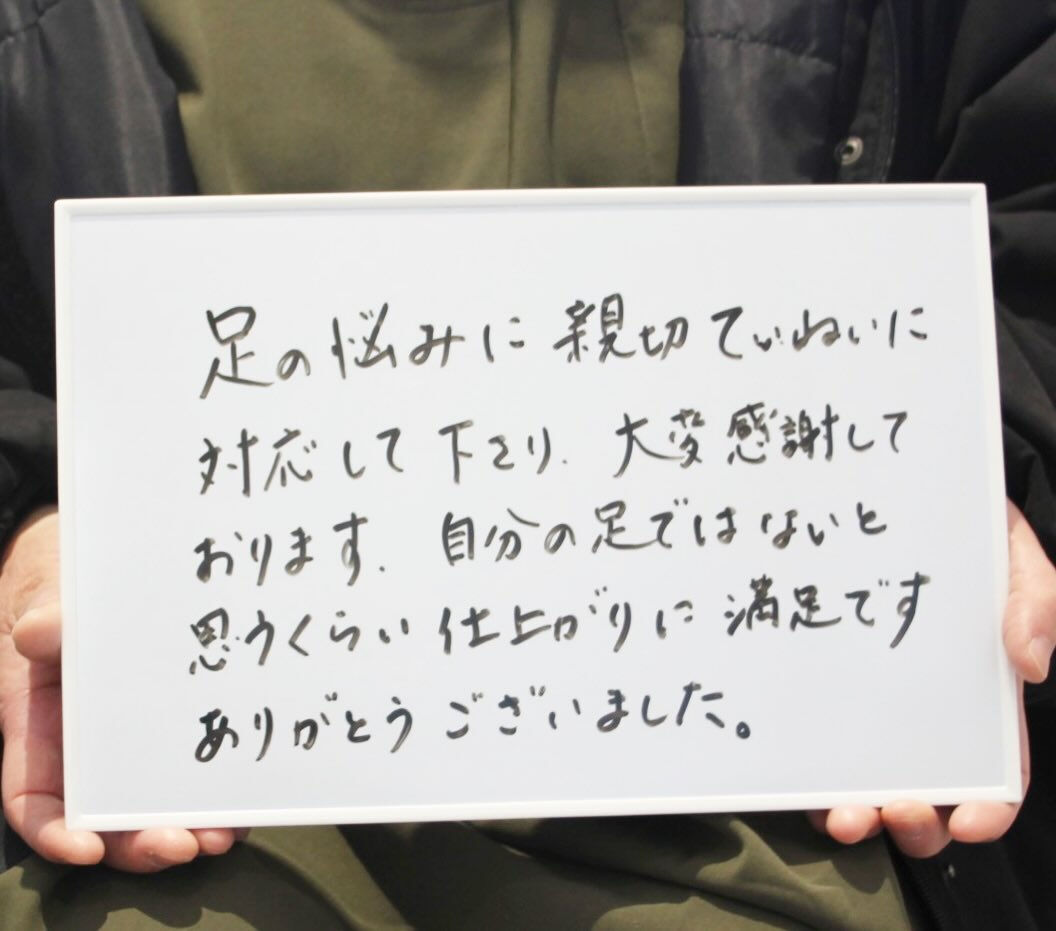 足の悩みに親切ていねいに
対応して下さり、大変感謝して
おります。自分の足ではないと
思うくらい仕上がりに満足です
ありがとうございました。